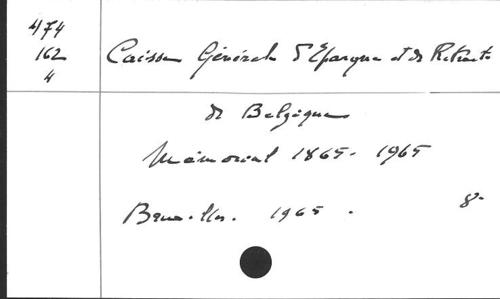 4/74
162
4
Caisse Générale d'Epargne et de Retraite
de Belgique
Mémorial 1865-1965
Bruxelles. 1965. 8-